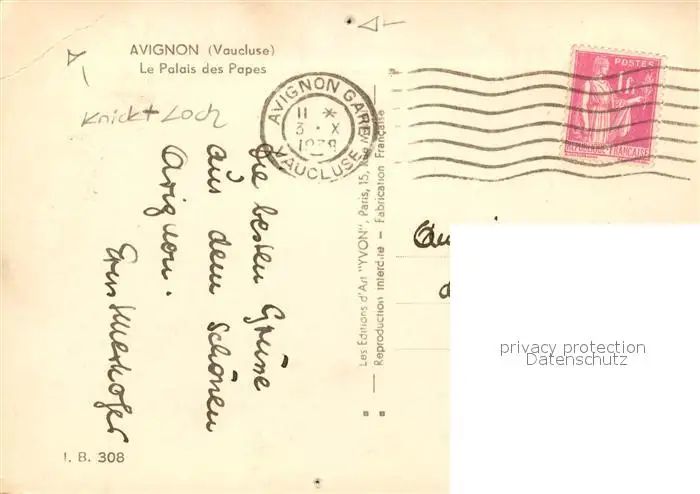 AVIGNON (Vaucluse)
Le Palais des Papes
Knick + Loch
AVIGNON GARE
11 *
3 · X
1938
VAUCLUSE
POSTES
1F
REPUBLIQUE FRANÇAISE
Die besten Grüsse
aus dem schönen
Avignon.
Ernst
Les Editions d'Art "YVON", Paris, 15, Rue
Reproduction interdite — Fabrication Française
privacy protection
Datenschutz
I. B. 308